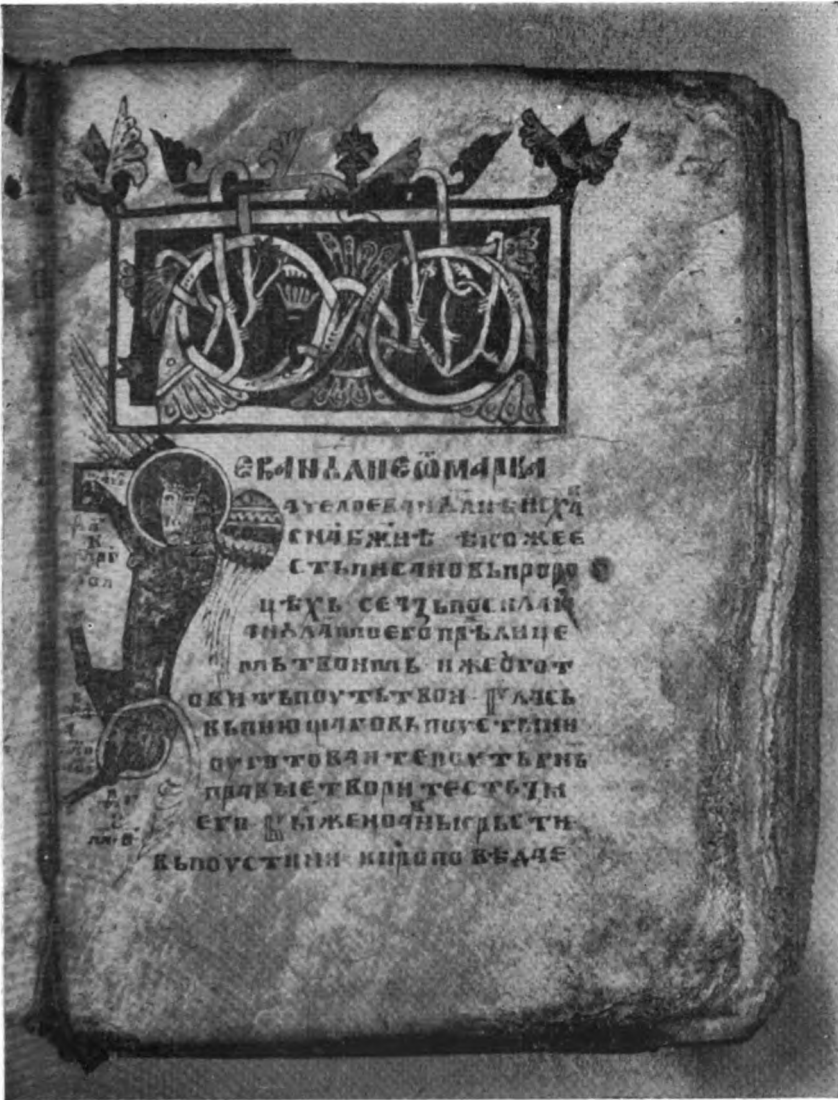 ЕВАНꙉЛИЕѾМАРКА
АЧЕЛОЕВАНꙉЛИѢИСХА
СНАБЖИѢ ѢКОЖЕЕ
СТЬПИСАНОВЬПРОРО
ЦѢХЬ СЕАЗЬПОСИЛАЮ
АНꙉЛАМОЕГОПРѢЛИЦЕ
МЬТВОИМЬ ИЖЕꙋГОТ
ОВИТЬПОУТЬТВОИ ГЛАСЬ
ВЬПИЮЩАГОВЬПОУСТИНИ
ОУГОТОВАИТЕПОУТЬГНЬ
ПРАВЫЕТВОРИТЕСТЬЗИ
ЕГО БЫЖЕИОАНЬКРЬСТИ
ВЬПОУСТИНИ ИПРОПОВѢДАЕ